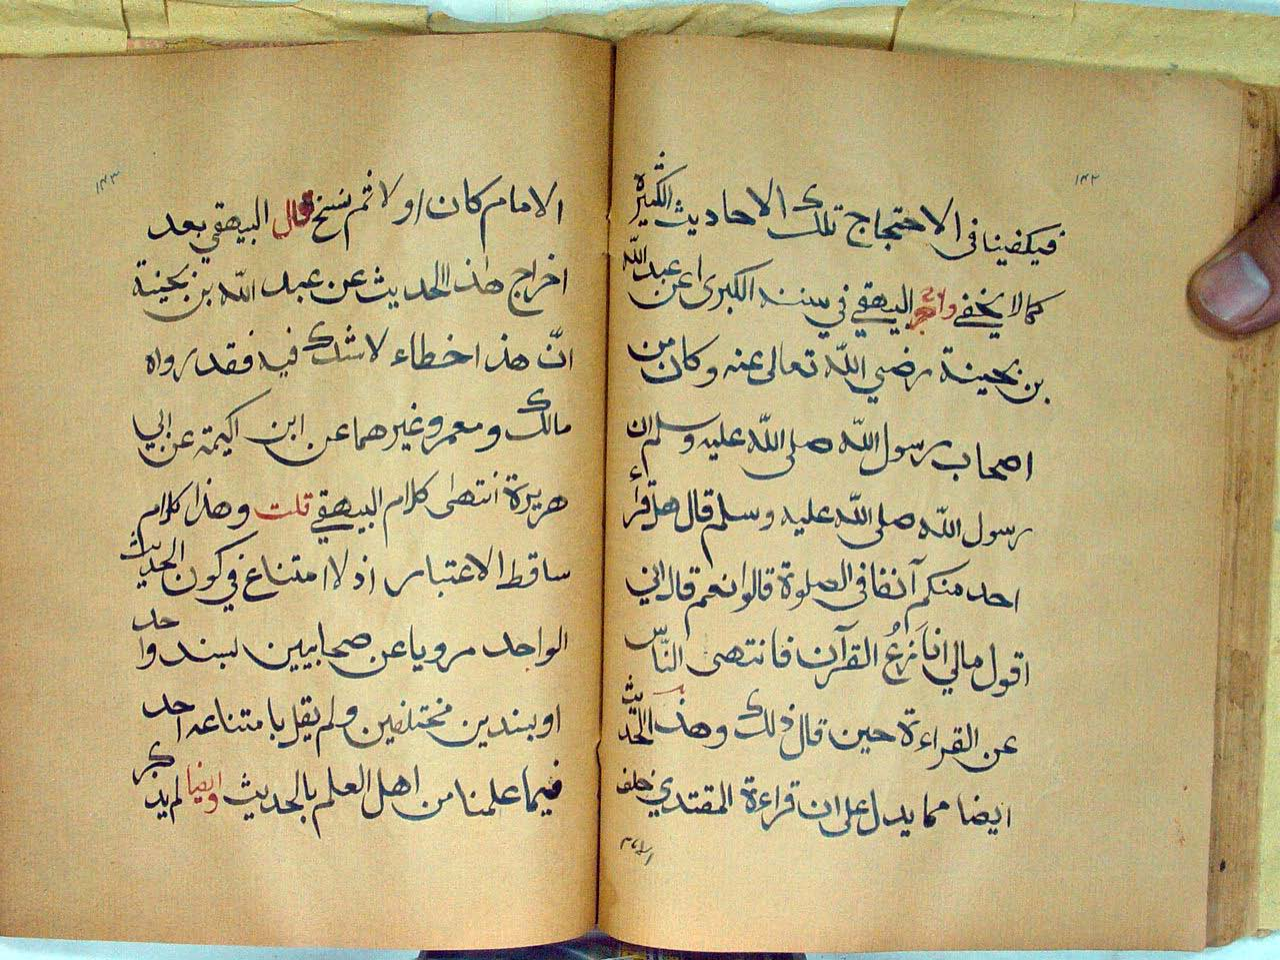 ١٤٢
فيكفينا فى الاحتجاج تلك الاحاديث الكثيرة
كما لا يخفى واخرج البيهقي في سننه الكبرى عن عبد الله
بن بحينة رضي الله تعالى عنه وكان من
اصحاب رسول الله صلى الله عليه وسلم ان
رسول الله صلى الله عليه وسلم قال هل قرأ
احد منكم آنفا فى الصلوة قالوا نعم قال اني
اقول مالي انازع القرآن فانتهى الناس
عن القراءة حين قال ذلك وهذا الحديث
ايضا مما يدل على ان قراءة المقتدي خلف
١٤٣
الامام كان اولا ثم نسخ قال البيهقي بعد
اخراج هذا الحديث عن عبد الله بن بحينة
انّ هذا خطاء لا شك فيه فقد رواه
مالك ومعمر وغيرهما عن ابن اكيمة عن ابي
هريرة انتهى كلام البيهقي قلت وهذا كلام
ساقط الاعتبار اذ لا امتناع في كون الحديث
الواحد مرويا عن صحابيين بسند واحد
او بسندين مختلفين ولم يقل بامتناعه احد
فيما علمنا من اهل العلم بالحديث وايضا لم يذكر